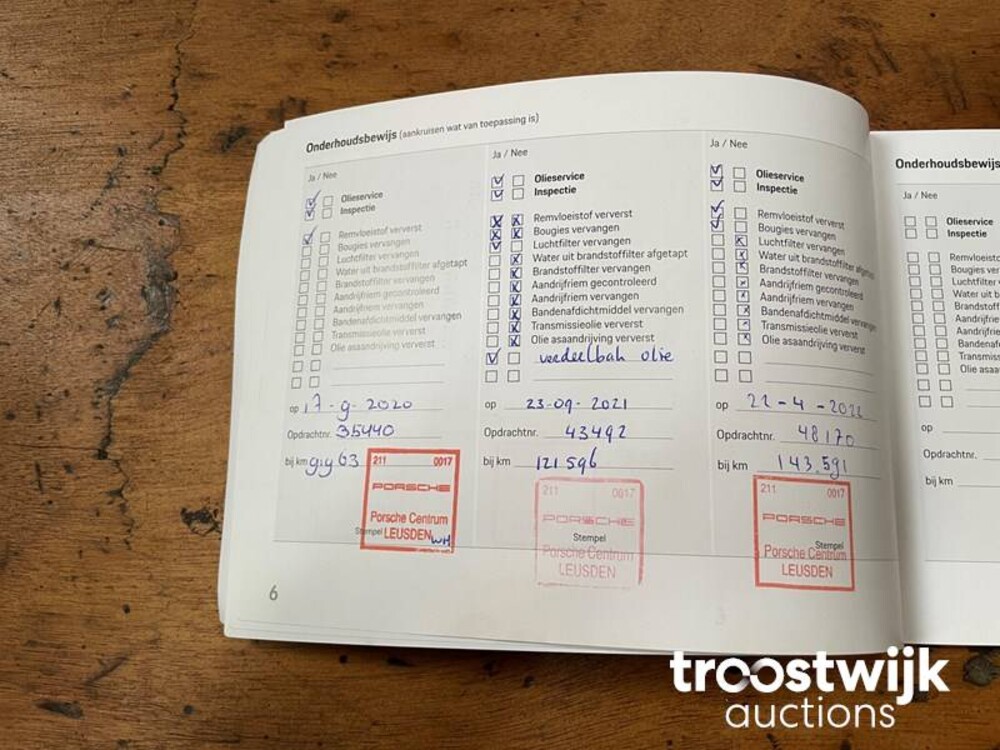 Onderhoudsbewijs (aankruisen wat van toepassing is)
Ja / Nee
Olieservice
Inspectie
Remvloeistof ververst
Bougies vervangen
Luchtfilter vervangen
Water uit brandstoffilter afgetapt
Brandstoffilter vervangen
Aandrijfriem gecontroleerd
Aandrijfriem vervangen
Bandenafdichtmiddel vervangen
Transmissieolie ververst
Olie asaandrijving ververst
op 17-9-2020
Opdrachtnr. 35440
bij km
211 0017
PORSCHE
Porsche Centrum
Stempel LEUSDEN WH
6
Ja / Nee
Olieservice
Inspectie
Remvloeistof ververst
Bougies vervangen
Luchtfilter vervangen
Water uit brandstoffilter afgetapt
Brandstoffilter vervangen
Aandrijfriem gecontroleerd
Aandrijfriem vervangen
Bandenafdichtmiddel vervangen
Transmissieolie ververst
Olie asaandrijving ververst
verdeelbak olie
op 23-09-2021
Opdrachtnr. 43492
bij km 121596
211 0017
PORSCHE
Stempel
Porsche Centrum
LEUSDEN
Ja / Nee
Olieservice
Inspectie
Remvloeistof ververst
Bougies vervangen
Luchtfilter vervangen
Water uit brandstoffilter afgetapt
Brandstoffilter vervangen
Aandrijfriem gecontroleerd
Aandrijfriem vervangen
Bandenafdichtmiddel vervangen
Transmissieolie ververst
Olie asaandrijving ververst
op 22-4-2022
Opdrachtnr. 48170
bij km 143.591
211 0017
PORSCHE
Stempel
Porsche Centrum
LEUSDEN
Onderhoudsbewijs
Ja / Nee
Olieservice
Inspectie
Remvloeistof
Bougies ver
Luchtfilter
Water uit b
Brandstoff
Aandrijfrie
Aandrijfrie
Bandenaf
Transmiss
Olie asaa
op
Opdrachtnr.
bij km
troostwijk
auctions